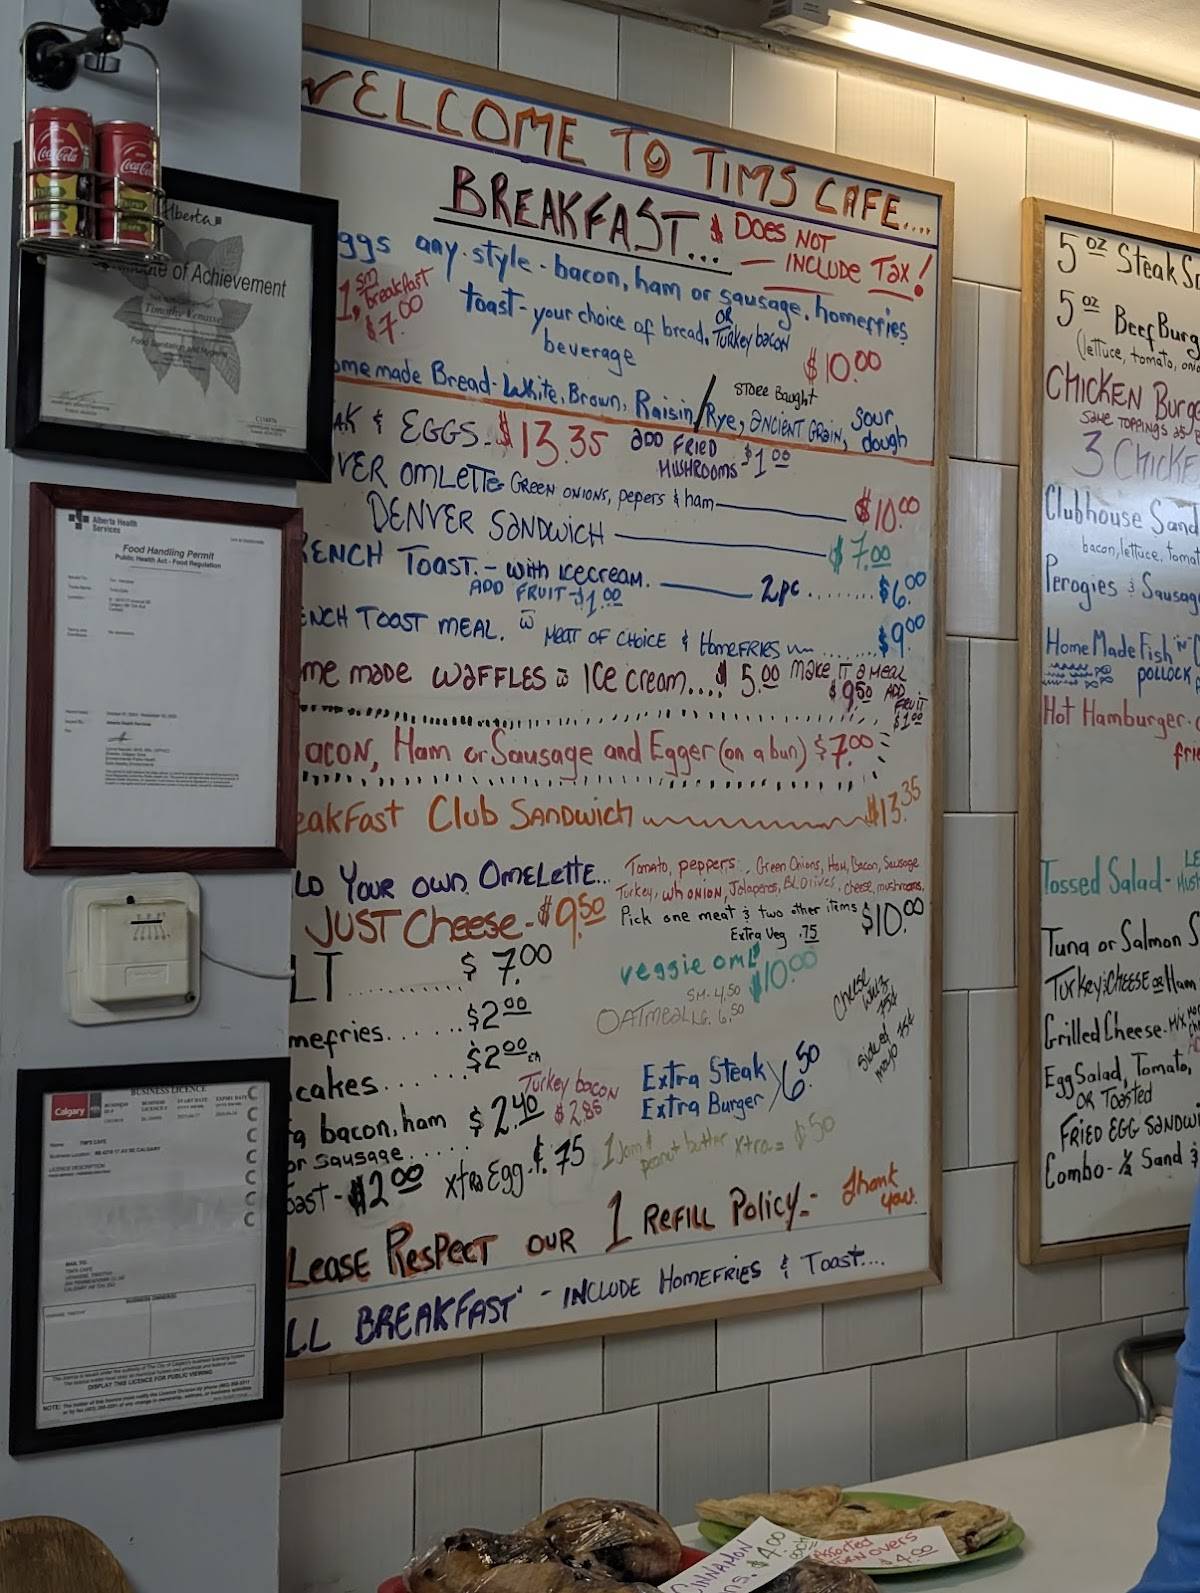 WELCOME TO TIMS CAFE....
BREAKFAST...
$ DOES NOT
— INCLUDE TAX!
ggs any-style - bacon, ham or sausage, homefries
1 sm breakfast
$7.00
toast - your choice of bread. OR Turkey bacon
beverage
$10.00
ome made Bread - White, Brown, Raisin / Rye, Ancient Grain, sour dough
Store Baught
AK & EGGS - $13.35 ADD FRIED MUSHROOMS $1.00
VER OMLETTE Green onions, pepers & ham — $10.00
DENVER SANDWICH — $7.00
RENCH TOAST. - with icecream. — 2pc........ $6.00
ADD FRUIT - $1.00
ENCH TOAST MEAL. w MEAT OF CHOICE & HomeFRIES ...... $9.00
me made WAFFLES w ICE cream.... $5.00 MAKE IT A MEAL $9.50 ADD FRUIT $1.00
ACON, Ham or Sausage and Egger (on a bun) $7.00
eakFast Club SANDWICH $13.35
LD YOUR OWN OMELETTE...
Tomato, peppers, Green Onions, Ham, Bacon, Sausage
Turkey, wh ONION, Jalapenos, BL Olives, cheese, mushrooms.
JUST Cheese - $9.50
Pick one meat & two other items $10.00
Extra Veg .75
LT............ $7.00
veggie oml $10.00
mefries....... $2.00
OATMEAL SM. 4.50
LG. 6.50
Cheese Whiz .75¢
Side of mayo .75¢
cakes....... $2.00 EA
Turkey bacon $2.85
Extra Steak
Extra Burger
6.50
bacon, ham $2.40
or sausage.....
1 Jam & peanut butter xtra = $.50
oast - $2.00 xtra Egg - $.75
LEASE RESPECT OUR 1 REFILL POLICY - Thank you.
LL BREAKFAST' - INCLUDE HOMEFRIES & TOAST....
5 oz Steak Sa
5 oz Beef Burg
(lettuce, tomato, onio
CHICKEN Burge
SAME TOPPINGS AS
3 CHICKE
Clubhouse Sand
bacon, lettuce, tomat
Perogies & Sausag
Home Made Fish 'N' C
POLLOCK
Hot Hamburger -
frie
Tossed Salad -
Tuna or Salmon S
Turkey & CHEESE or Ham
Grilled Cheese -
Egg Salad, Tomato,
OR TOASTED
FRIED EGG SANDWI
Combo - ½ Sand &
Coca-Cola
Coca-Cola
Alberta
te of Achievement
Food Sanitation and Hygiene
Alberta Health
Services
Food Handling Permit
Public Health Act - Food Regulation
Calgary
BUSINESS LICENCE
TIM'S CAFE
DISPLAY THIS LICENCE FOR PUBLIC VIEWING
CINNAMON
$4.00 each
Assorted
TURNOVERS
$4.00